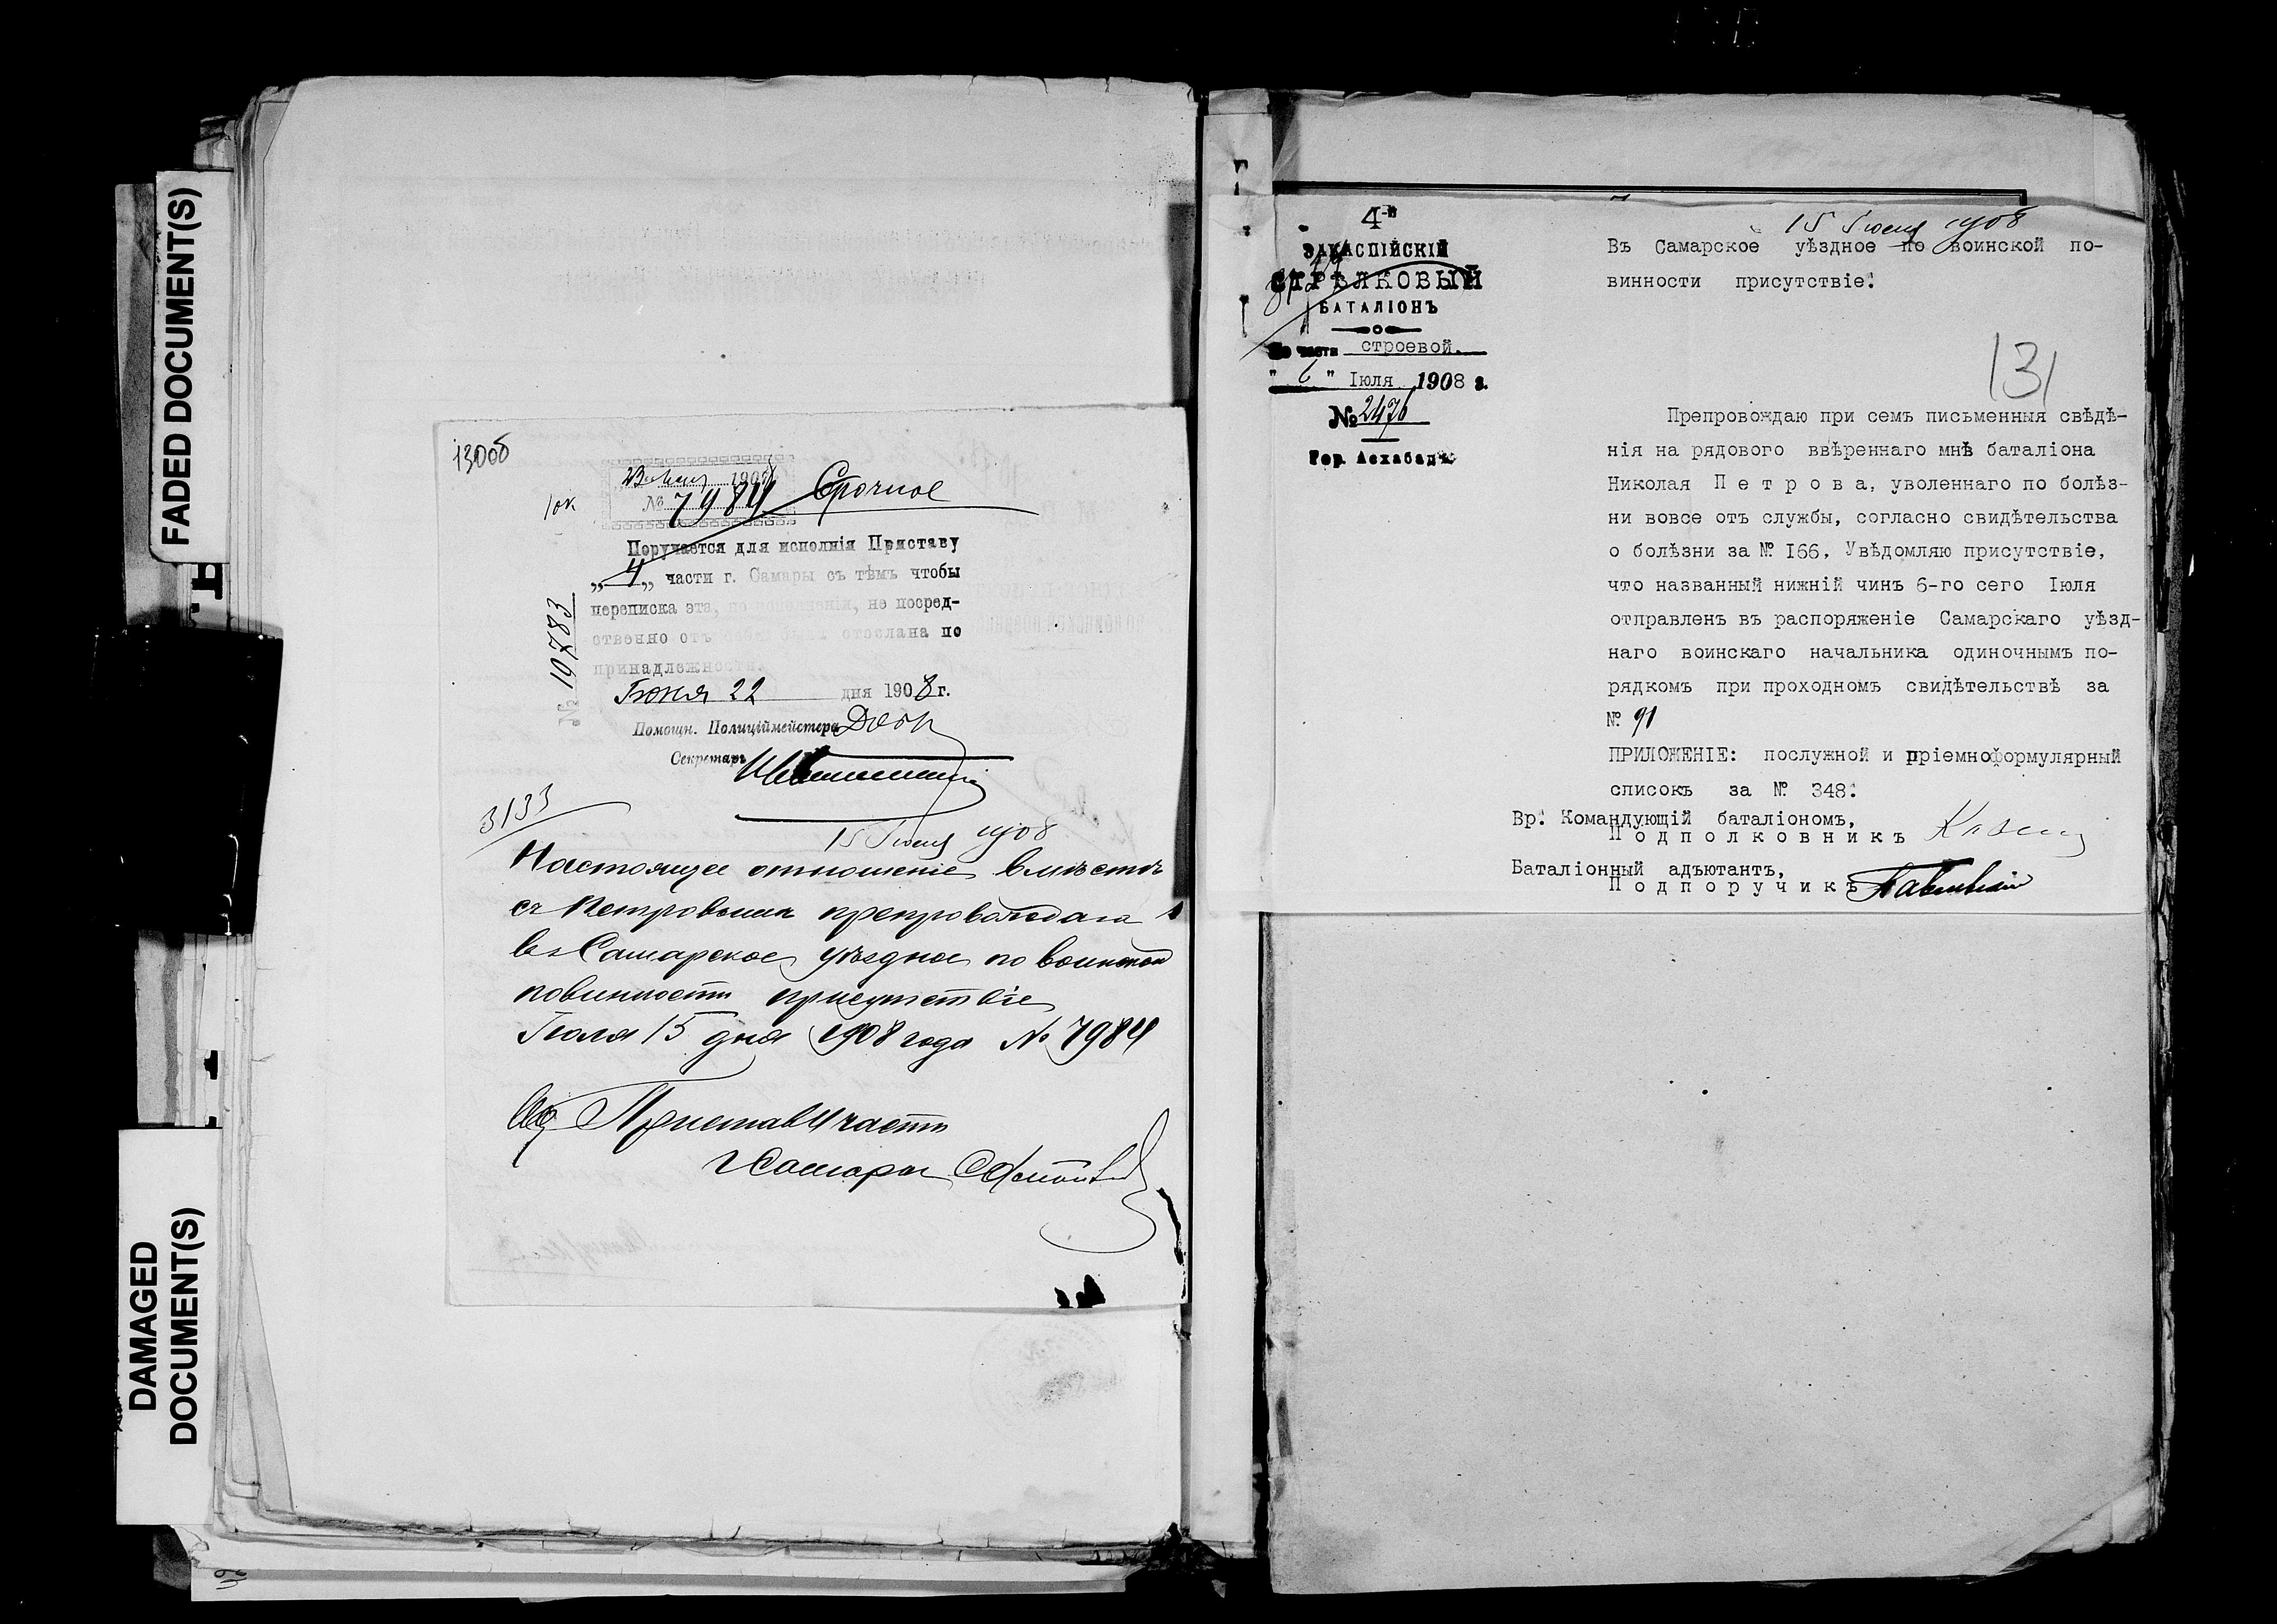 FADED DOCUMENT(S)
DAMAGED
DOCUMENT(S)
130об
1908
№ 7984 Срочное
Поручается для исполнія Приставу
„4„ части г. Самары съ тѣмъ чтобы
переписка эта, по исполненіи, не посред-
ственно отъ себя была отослана по
принадлежности.
Іюня 22 дня 1908 г.
№ 19783
Помощн. Полиціймейстера
Секретарь
3133
15 Іюля 1908
Настоящее отношеніе вмѣстѣ
съ Петровымъ препровождаю
въ Самарское уѣздное по воинской
повинности присутствіе
Іюля 15 дня 1908 года № 7984
Приставъ 4 части
г Самары
4-й
ЗАКАСПІЙСКІЙ
СТРѢЛКОВЫЙ
БАТАЛІОНЪ
По части строевой.
" 6 " Іюля 1908 г.
№ 2476
Гор. Асхабадъ
15 Іюля 1908
Въ Самарское уѣздное по воинской по-
винности присутствіе.
131
Препровождаю при семъ письменныя свѣдѣ-
нія на рядового ввѣреннаго мнѣ баталіона
Николая П е т р о в а, уволеннаго по болѣз-
ни вовсе отъ службы, согласно свидѣтельства
о болѣзни за № I66. Увѣдомляю присутствіе,
что названный нижній чинъ 6-го сего Іюля
отправленъ въ распоряженіе Самарскаго уѣзд-
наго воинскаго начальника одиночнымъ по-
рядкомъ при проходномъ свидѣтельствѣ за
№ 91
ПРИЛОЖЕНІЕ: послужной и пріемноформулярный
списокъ за № 348.
Вр. Командующій баталіономъ,
П о д п о л к о в н и к ъ
Баталіонный адъютантъ,
П о д п о р у ч и к ъ